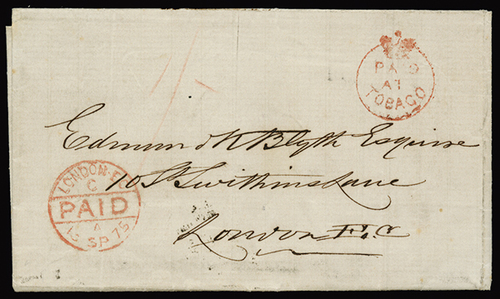 PAID
AT
TOBAGO
Edmund K Blyth Esquire
10 St Swithins Lane
London E.C
LONDON-E.C
C
PAID
A
SP 79